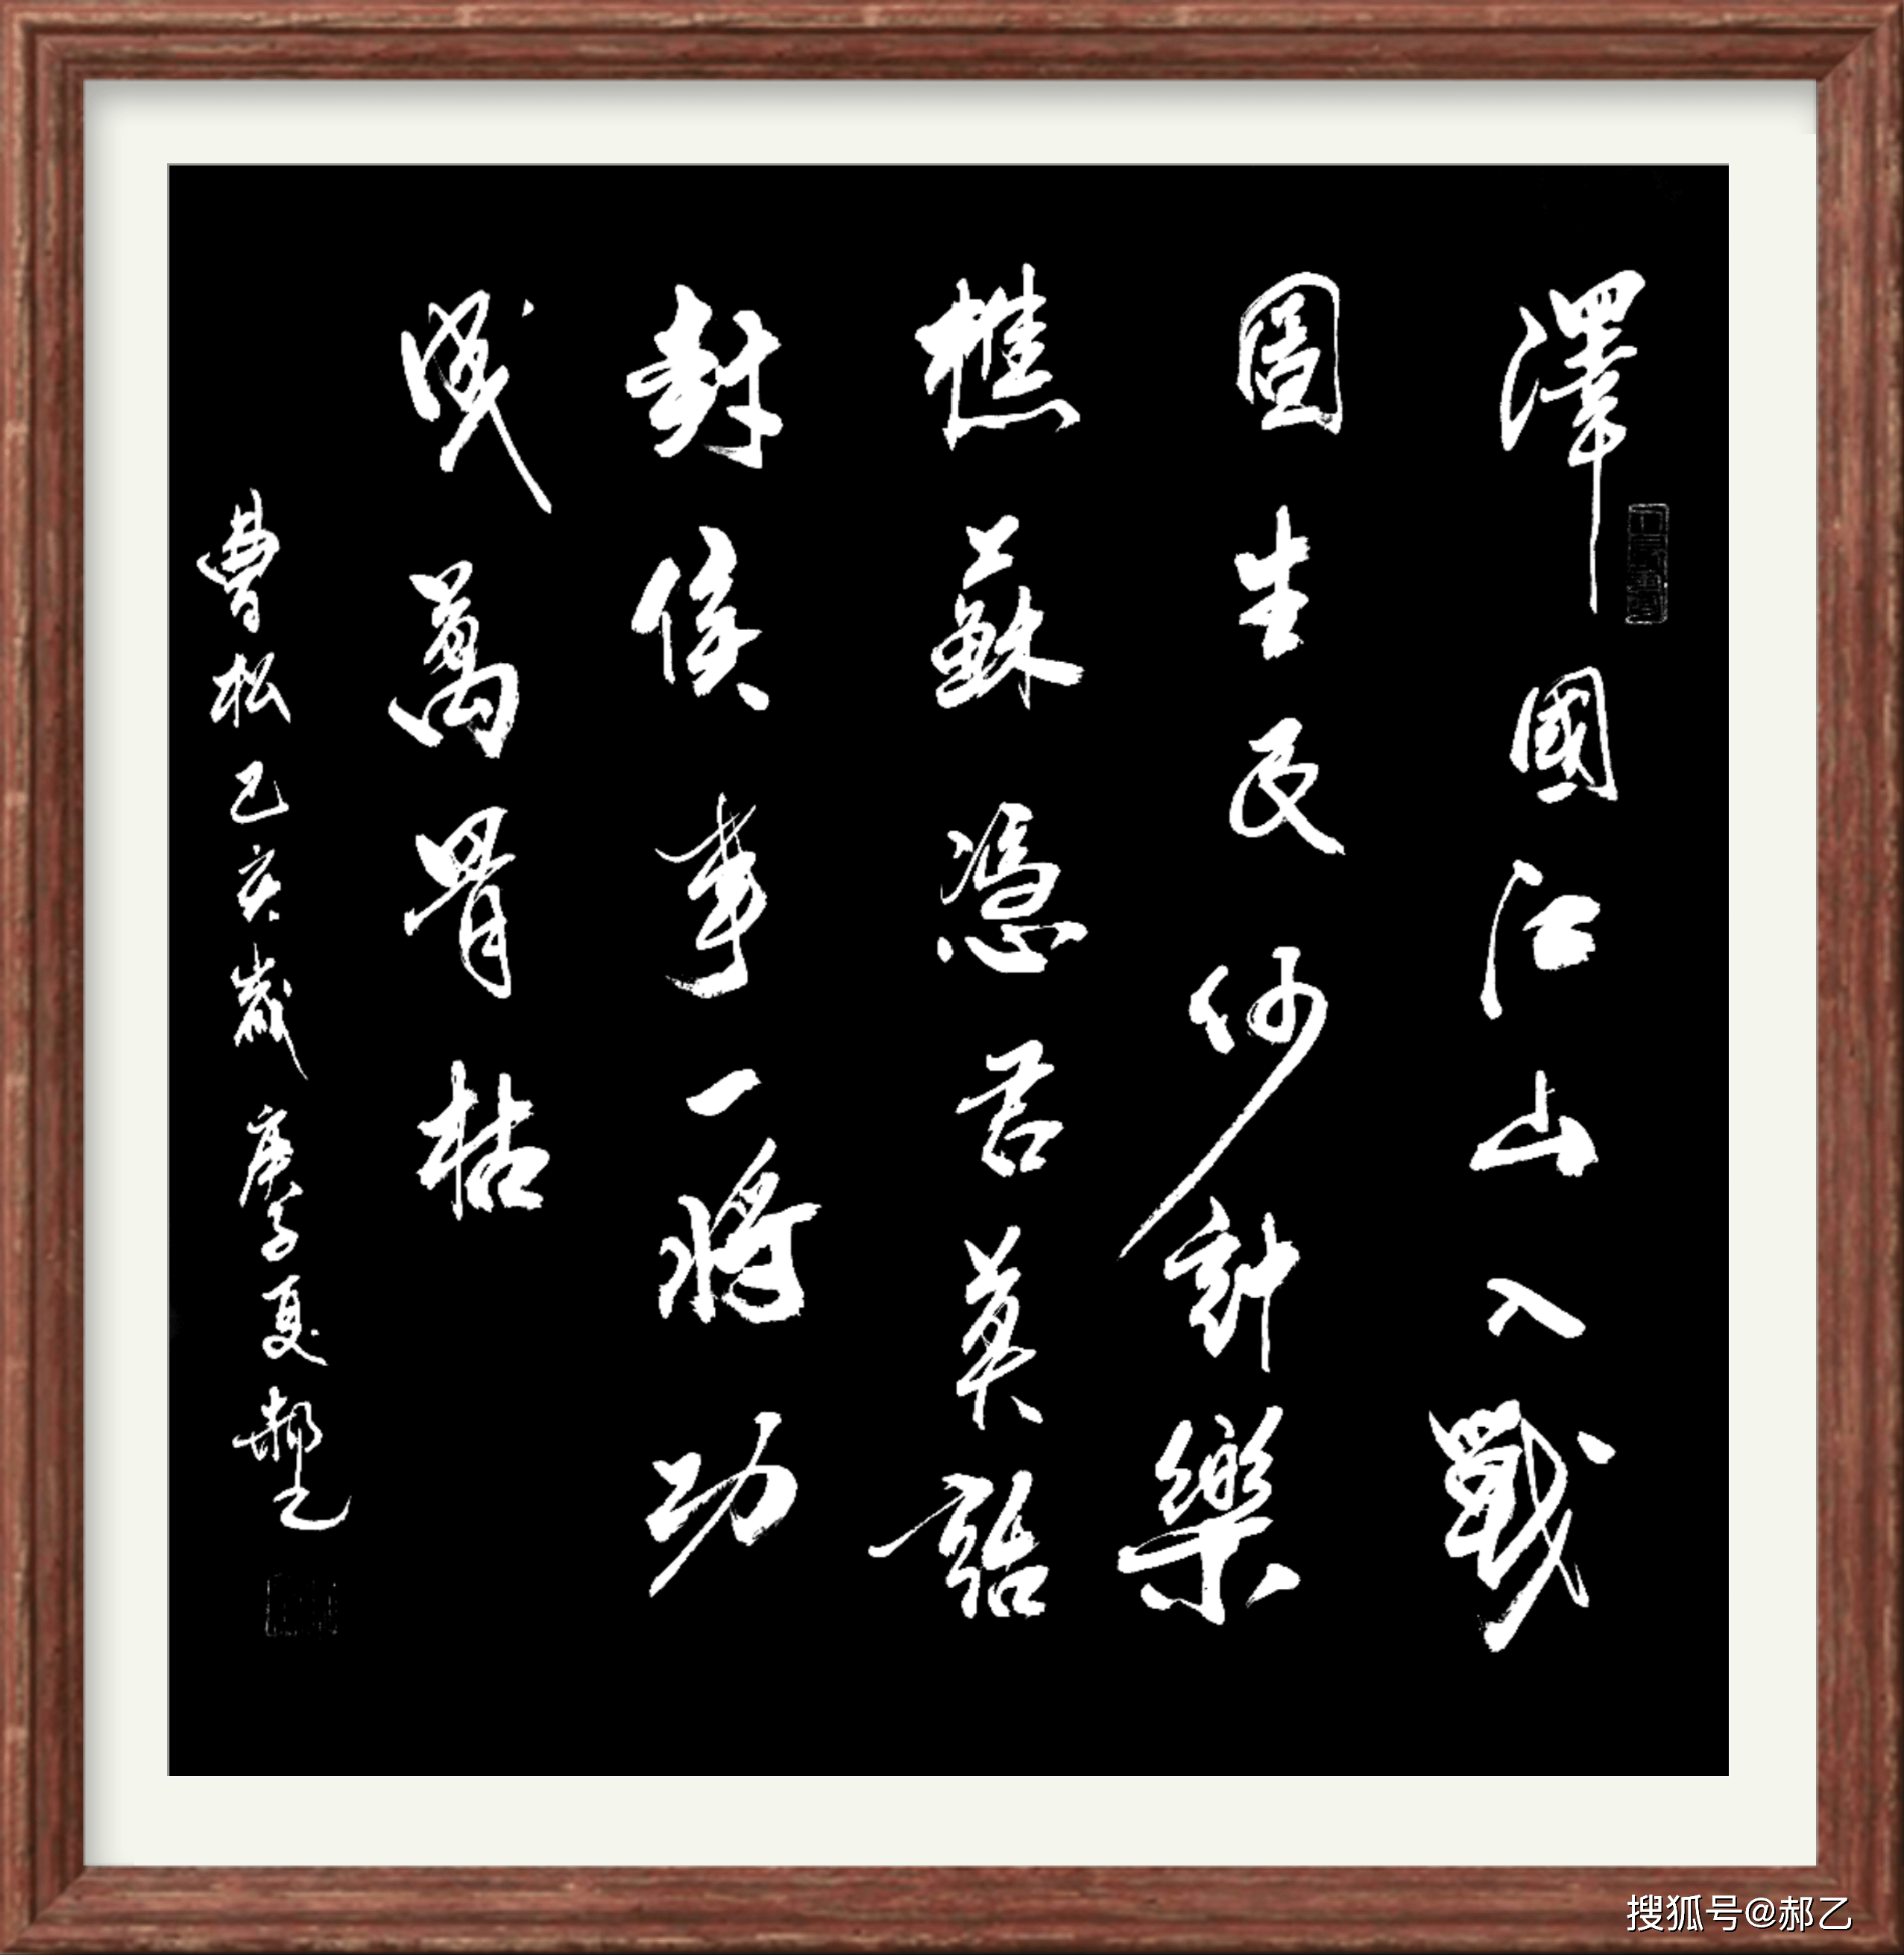 澤國江山入戰
圖生民何計樂
樵蘇憑君莫話
封侯事一將功
成萬骨枯
曹松己亥歲庚子夏郝乙
搜狐号@郝乙